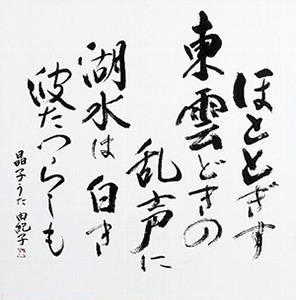 ほととぎす
東雲どきの
乱声に
湖水は白き
波たつらしも
晶子うた 由紀子